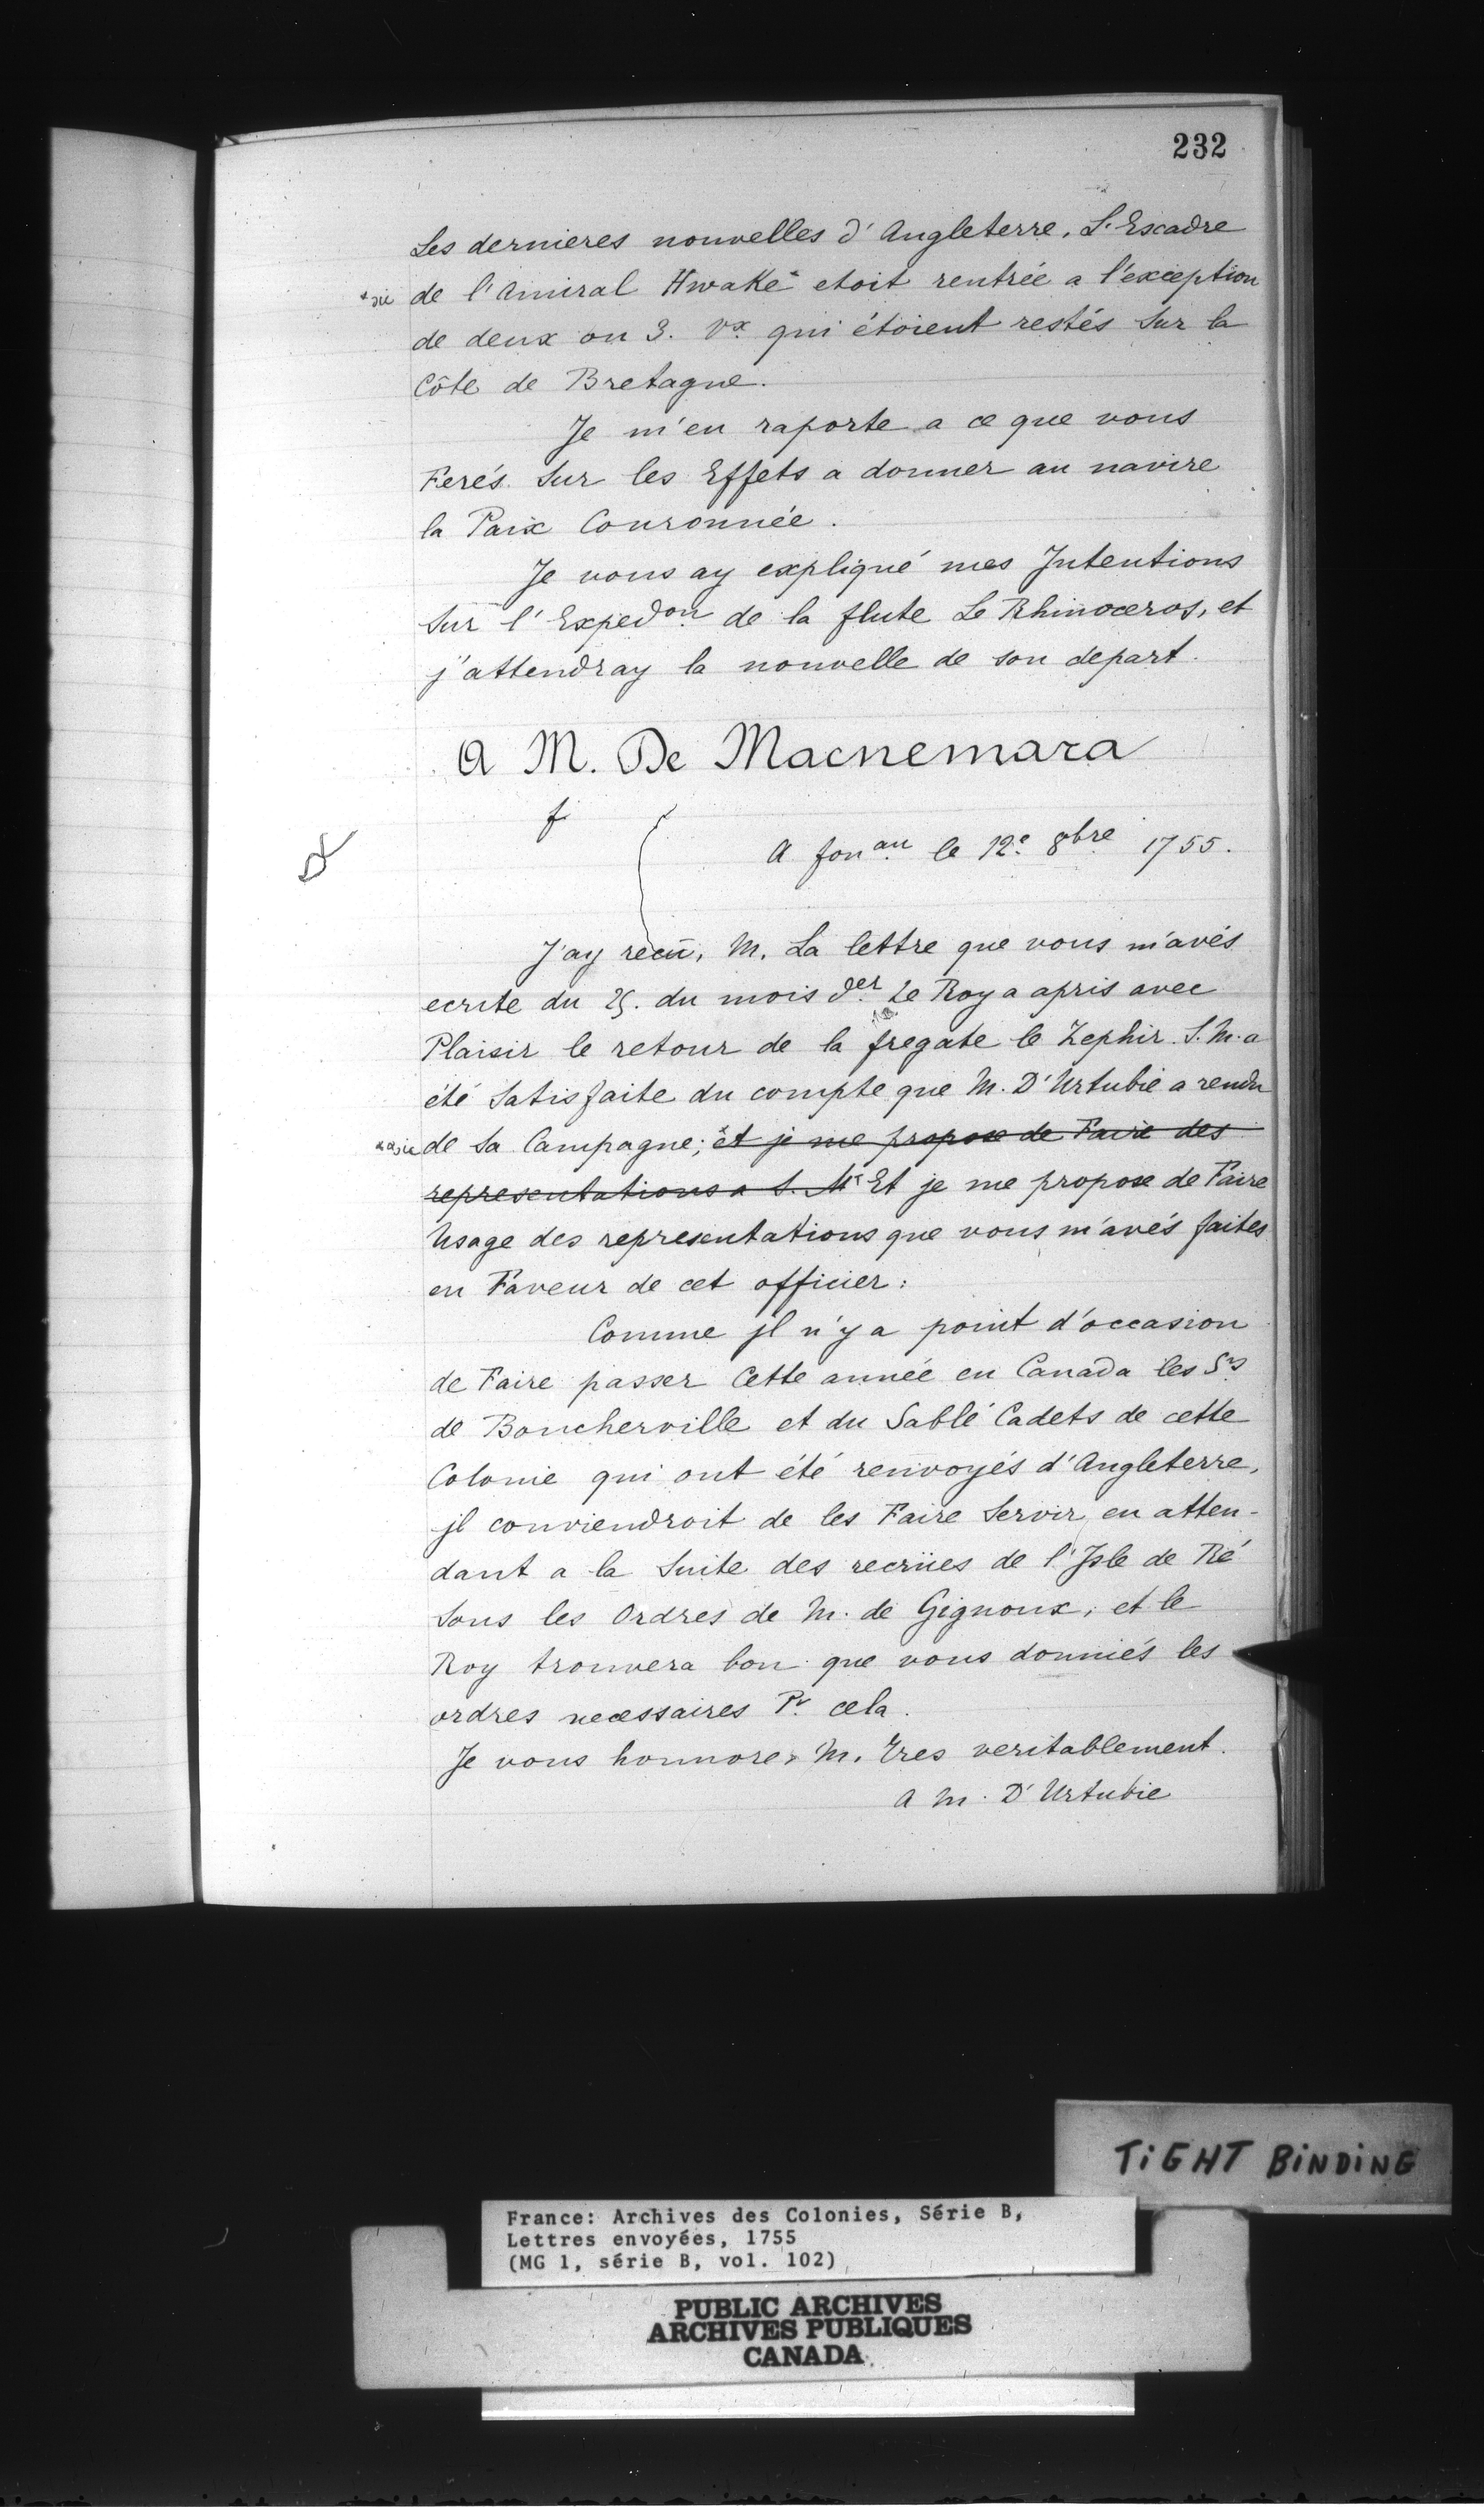 232
Les dernieres nouvelles d'Angleterre. L'Escadre
*sic de l'Amiral Hwake* etoit rentrée a l'exception
de deux ou 3. Vx qui étoient restés sur la
Côte de Bretagne.
Je m'en raporte a ce que vous
Ferés sur les Effets a donner au navire
la Paix Couronnée.
Je vous ay expliqué mes Intentions
sur l'Expedon de la flute Le Rhinoceros, et
j'attendray la nouvelle de son depart.
A M. De Macnemara
f
A fonau le 12e 8bre 1755.
J'ay recû, M. La lettre que vous m'avés
ecrite du 25. du mois der Le Roy a apris avec
Plaisir le retour de la fregate le Zephir. S. M. a
été Satisfaite du compte que M. D'Urtubie a rendu
*sic de sa Campagne; *et je me propose de Faire des
representations a S. M* Et je me propose de Faire
Usage des representations que vous m'avés faites
en Faveur de cet officier:
Comme jl n'y a point d'occasion
de Faire passer Cette année en Canada les Srs
de Boucherville et du Sablé Cadets de cette
Colonie qui ont été renvoyés d'Angleterre,
jl conviendroit de les Faire Servir en atten-
dant a la Suite des recrües de l'Jsle de Ré
sous les Ordres de M. de Gignoux, et le
Roy trouvera bon que vous donniés les
ordres necessaires Pr cela.
Je vous honnore, M. Tres veritablement.
A M. D'Urtubie
TiGHT BiNDiNG
France: Archives des Colonies, Série B,
Lettres envoyées, 1755
(MG 1, série B, vol. 102)
PUBLIC ARCHIVES
ARCHIVES PUBLIQUES
CANADA